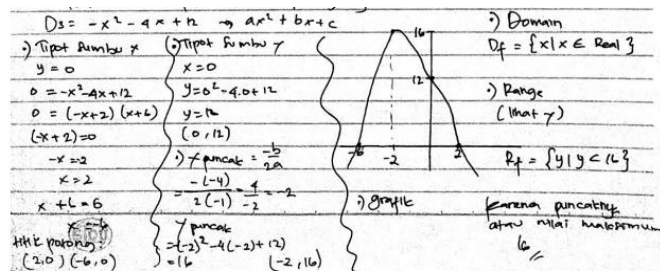 D3 = -x² - 4x + 12 → ax² + bx + c
•) Tipot Sumbu x
y = 0
0 = -x² - 4x + 12
0 = (-x+2) (x+6)
(-x+2) = 0
-x = -2
x = 2
x + 6 = 0
x = -6
titik potong:
(2,0) (-6,0)
•) Tipot Sumbu y
x = 0
y = 0² - 4.0 + 12
y = 12
(0, 12)
•) x puncak = -b/2a
= -(-4)/2(-1) = 4/-2 = -2
y puncak
= (-2)² - 4(-2) + 12)
= 16 (-2, 16)
16
12
-6 -2 2
•) grafik
•) Domain
Df = {x | x ∈ Real}
•) Range
(lihat y)
Rf = {y | y ≤ 16}
karena puncaknya
atau nilai maksimum
16